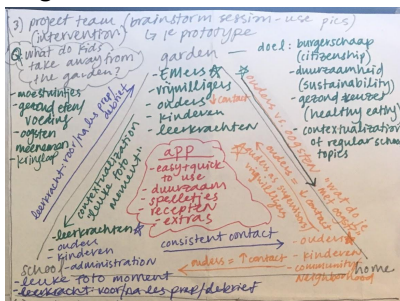 3) project team (brainstorm session - use pics)
(intervention) ↳ ie prototype
Q: what do kids
take away from
the garden?
- moestuintjes
- gezond eten/
voeding
- oogsten
- meenemen
- kringloop
garden
- EMers
- vrijwilligers
- ouders
- kinderen
- leerkrachten
↓ contact
doel: burgerschap
(citizenship)
- duurzaamheid
(sustainability)
- gezond keuze
(healthy eating)
- contextualization
of regular school
topics
leerkracht voor/na les prap/
debrief
contextualization
leuke foto
moment
app
- easy + quick
to use
- duurzaam
- spelletjes
- recepten
- extras
ouders vs. oogsten
ouders ↓ contact
vrijwilligers
- leerkrachten
- ouders
- kinderen
- administration
school
consistent contact
ouders = ↑ contact
- ouders
- kinderen
- community/
neighborhood
home
- leuke foto moment
- leerkracht voor/na les prap/debrief